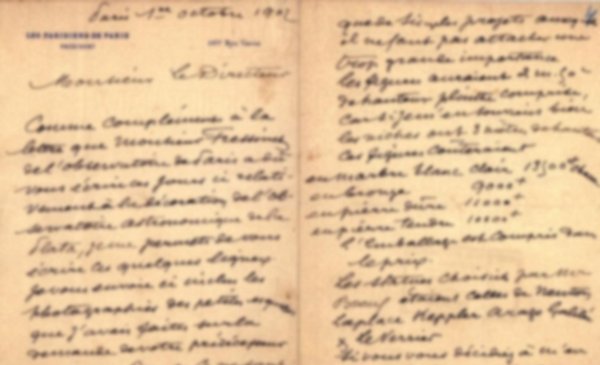 Paris 1er octobre 190
LES PARISIENS DE PARIS
Monsieur Le Directeur
Comme complément à la
lettre que Monsieur
de l'observatoire de Paris a dû
vous écrire ces jours ci relati-
vement à la décoration de l'ob-
servatoire astronomique de la
Plata, je me permets de vous
écrire ces quelques lignes
Je vous envoie ci inclus les
photographies des petites esquisses
que j'avais faites sur la
demande de votre prédécesseur
que de simples projets auxquels
il ne faut pas attacher une
trop grande importance
les figures auraient 2 m. 50
de hauteur plinthe comprise,
car si j'en ai souvenir bien
les niches ont 3 mètres de haut
Ces figures coûteraient
en marbre blanc clair 13500
en bronze 9000
en pierre dure 11000
en pierre tendre 10000
l'emballage est compris dans
le prix.
Les statues choisies par Mr
Beuf étaient celles de Newton,
Laplace Keppler Arago Galilée
& Le Verrier
Si vous vous décidiez à m'en